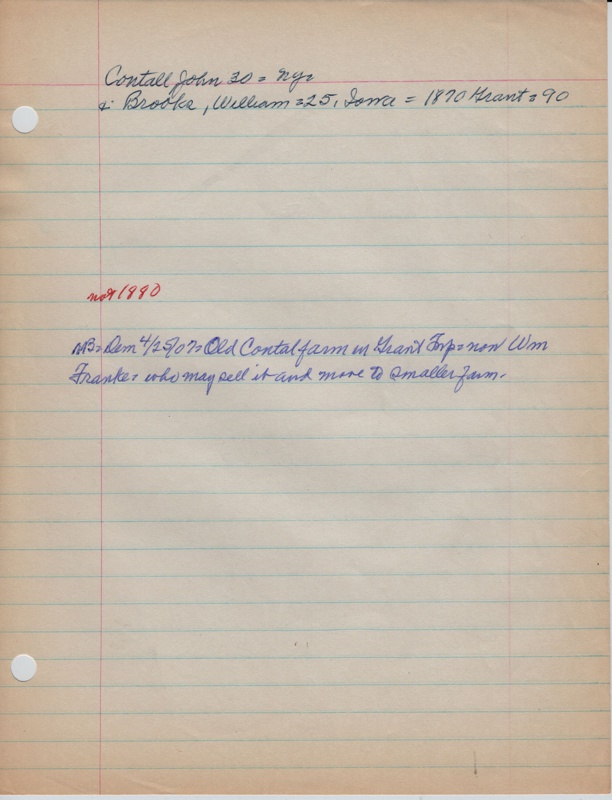 Contall John 30 = Ny =
& Brooks, William = 25, Iowa = 1870 Grant = 90
not 1880
MB = Dem 4/25/07 = Old Contal farm in Grant Twp = now Wm
Franke = who may sell it and move to smaller farm.